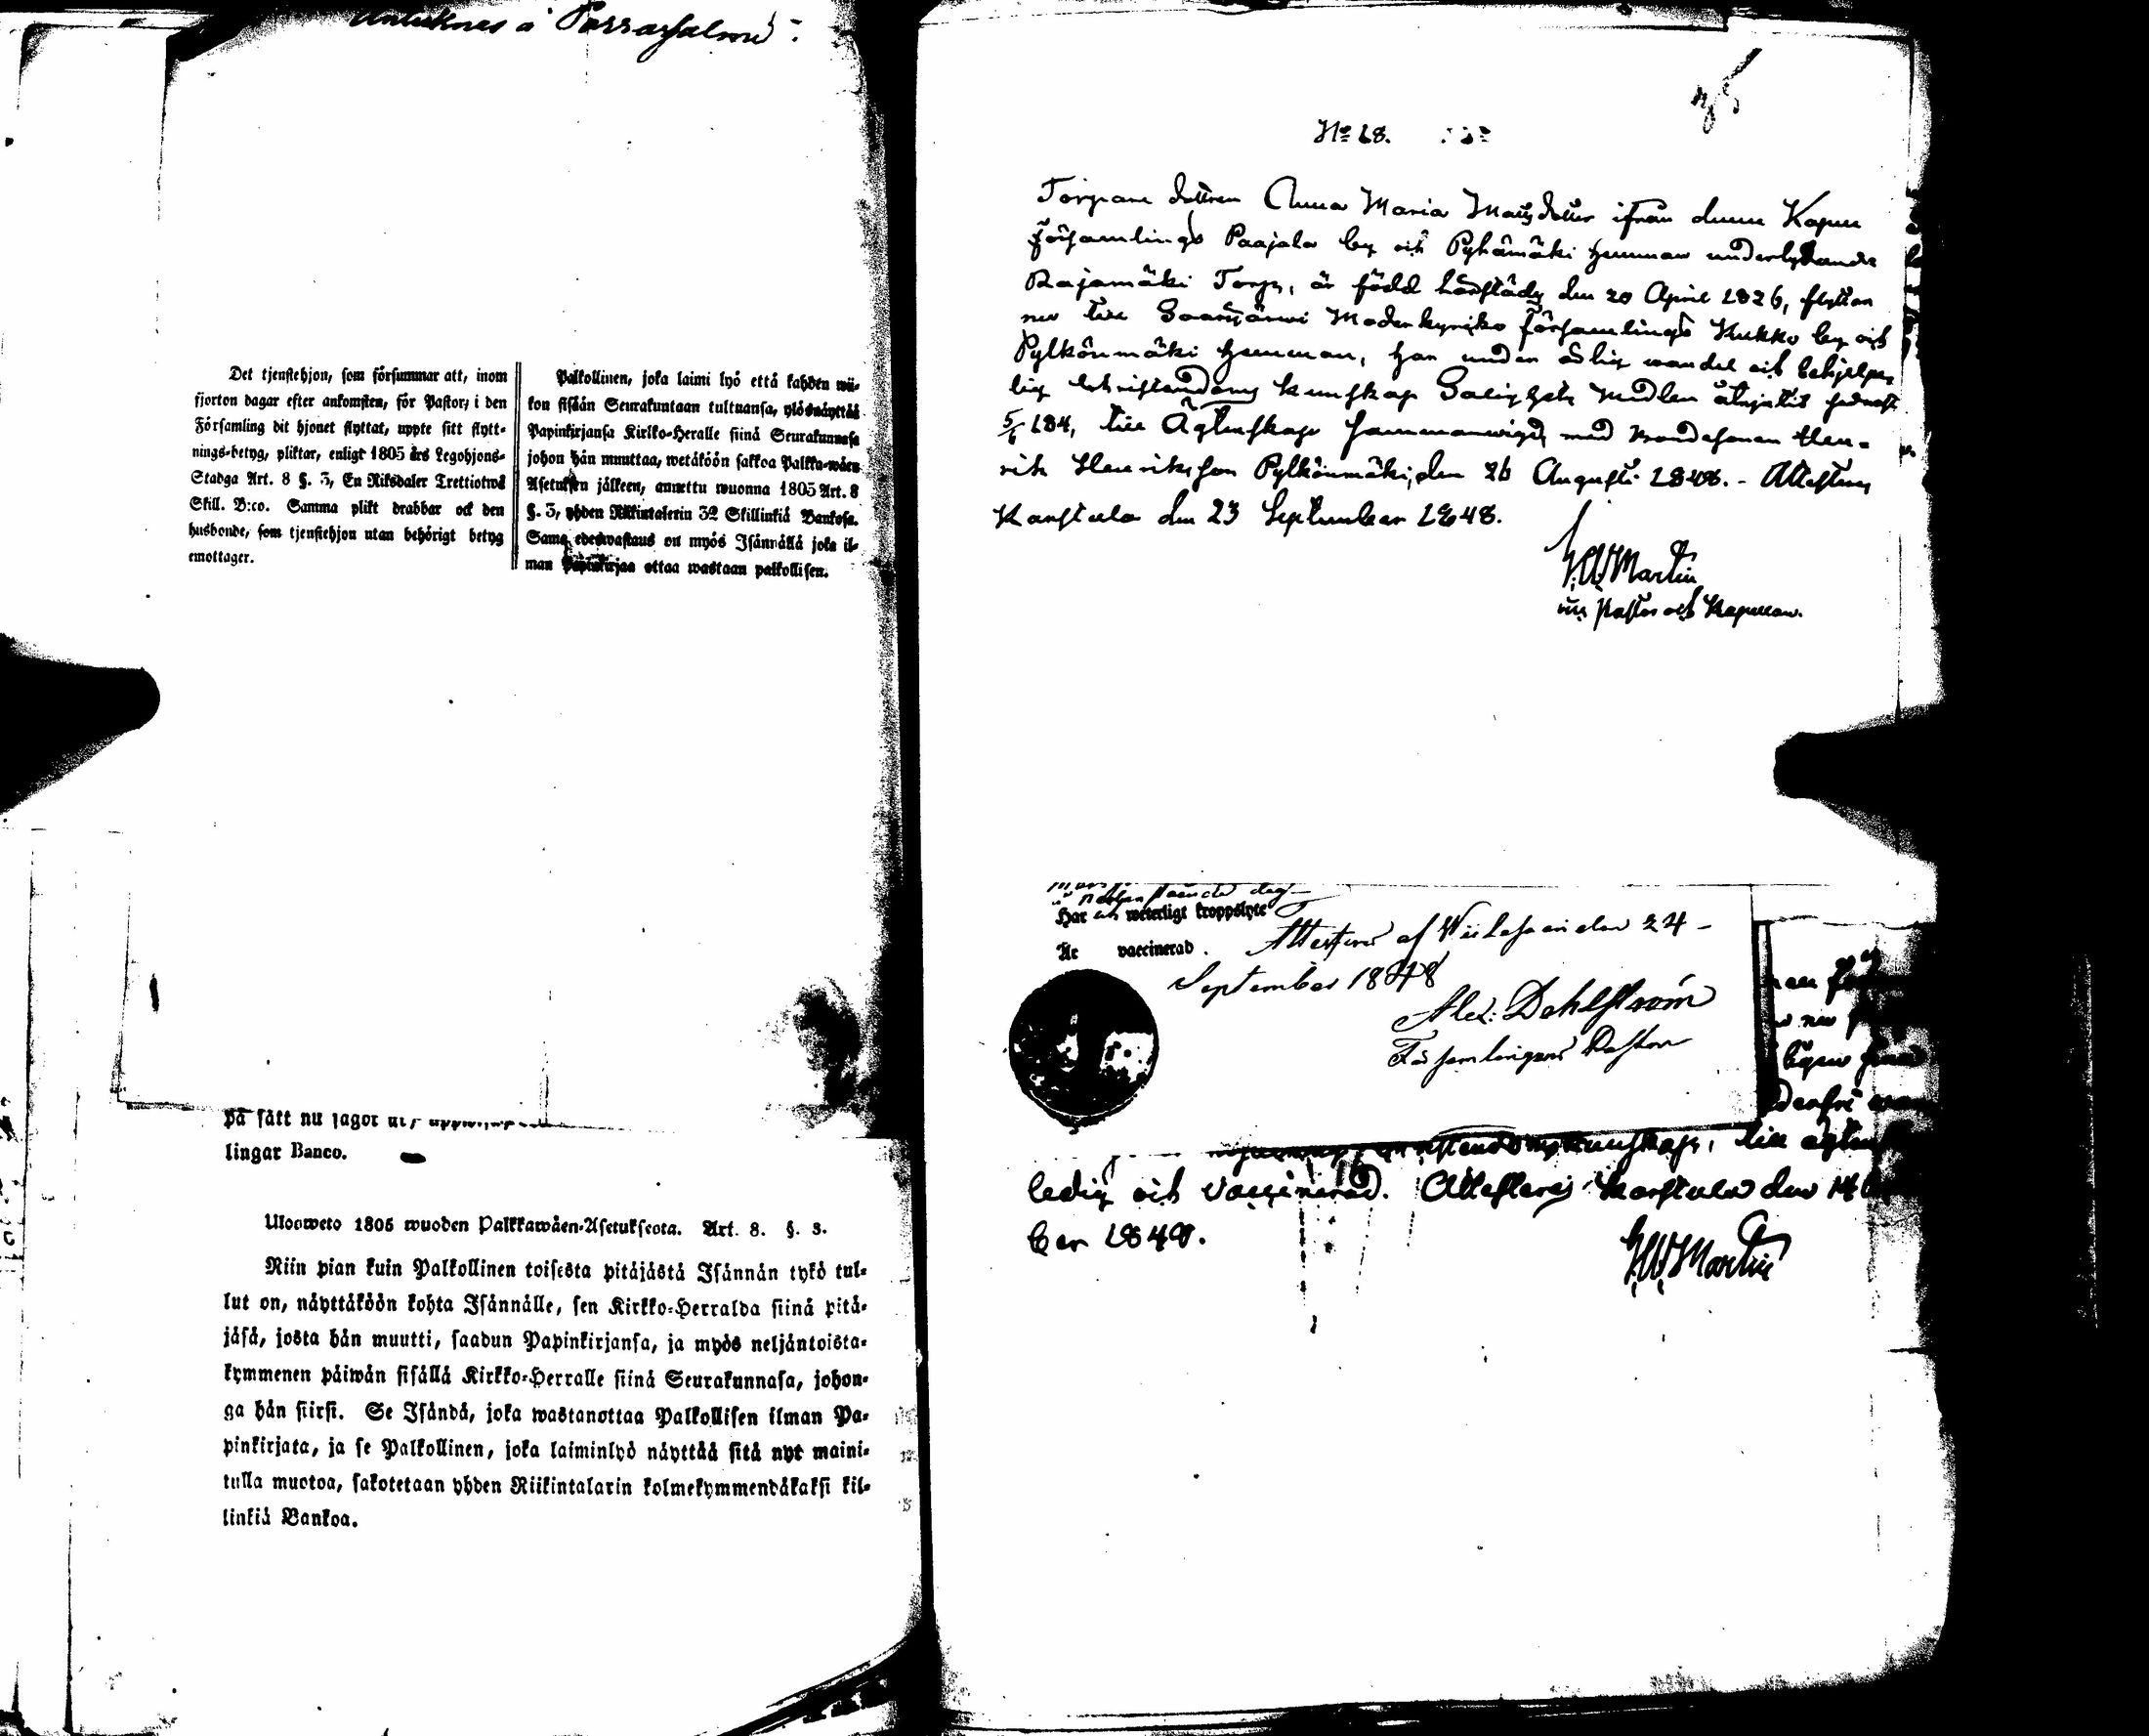 Antuknes å Porrassalmi
Det tjenstehjon, som försummar att, inom
fjorton dagar efter ankomsten, för Pastor, i den
Församling dit hjonet flyttat, uppte sitt flytt-
nings-betyg, pliktar, enligt 1805 års Legohjons-
Stadga Art. 8 §. 3, En Riksdaler Trettiotwå
Skill. B:co. Samma plikt drabbar ock den
husbonde, som tjenstehjon utan behörigt betyg
emottager.
Palkollinen, joka laimi lyö että kahden wii-
kon sisään Seurakuntaan tultuansa, ylösnäyttää
Papinkirjansa Kirkko-Heralle siinä Seurakunnasa
johon hän muuttaa, wetäköön sakkoa Palkka-wäen
Asetuksen jälkeen, annettu wuonna 1805 Art. 8
§. 3, yhden Riikintalerin 32 Skillinkiä Bankosa.
Sama edeswastaus on myös Isännällä joka il-
man Papinkirjaa ottaa wastaan palkollisen.
på sätt nu sagdt
lingar Banco.
Uloweto 1805 wuoden Palkkawäen-Asetuksesta. Art. 8. §. 3.
Niin pian kuin Palkollinen toisesta pitäjästä Isännän tykö tul-
lut on, näyttäköön kohta Isännälle, sen Kirkko-Herralda siinä pitä-
jäsä, josta hän muutti, saadun Papinkirjansa, ja myös neljäntoista-
kymmenen päiwän sisällä Kirkko-Herralle siinä Seurakunnasa, johon-
ga hän siirsi. Se Isändä, joka wastanottaa Palkollisen ilman Pa-
pinkirjata, ja se Palkollinen, joka laiminlyö näyttää sitä nyt maini-
tulla muotoa, sakotetaan yhden Riikintalarin kolmekymmendäkaksi kil-
linkiä Bankoa.
No 28.
Torpare dottren Anna Maria Matsdotter ifrån denne Kapell
församlings Paajala by och Pyhämäki hemman underlydande
Rajamäki Torp, är född härstädes den 20 April 1826, flyttar
nu till Saarijärwi Moderkyrko församlings Kukko by och
Pylkönmäki hemman, har under ärlig wandel och behjelpe-
lig Christendoms kunskap Salighets medlen åtnjutit sednast
till Äktenskap sammanwigd med Bondesonen Hen-
rik Henriksson Pylkönmäki, den 26 Augusti 1848. - Attesteras
Karstula den 23 September 1848.
Martin
Pastor och Kapellan.
nedanstående dag
Har ej weterligt kroppslyte
Är vaccinerad. Attesteras af Wiitasaari den 24
September 1848
Alex: Dahlström
Församlingens Pastor
byn
kunskap, till äkten
ledig och vaccinerad. Attesteras Karstula den 14
ber 1848.
Martin